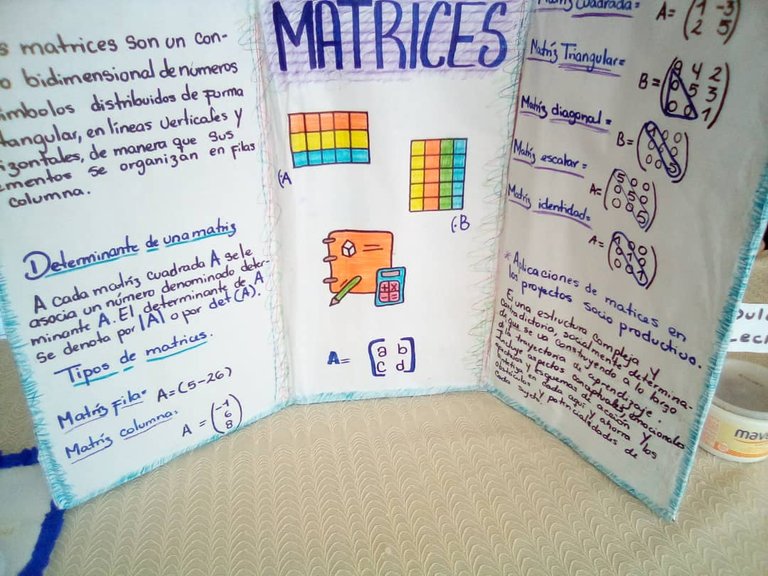 s matrices son un con-
o bidimensional de números
ímbolos distribuidos de forma
tangular, en líneas verticales y
izontales, de manera que sus
ementos se organizan en filas
columna.
Determinante de una matriz
A cada matríz cuadrada A se le
asocia un número denominado deter-
minante A. El determinante de A
se denota por |A| o por det (A).
Tipos de matrices.
Matríz Fila= A=(5-26)
Matríz columna:
A = (-4
6
8)
MATRICES
(A
(B
A= [a b
c d]
Matríz Cuadrada= A= (1 -3
2 5)
Matríz Triangular=
B = (0 4 2
0 5 3
0 0 1)
Matríz diagonal=
B=
Matríz escalar=
A= (5 0 0
0 5 0
0 0 5)
Matríz identidad=
A= (1 0 0
0 1 0
0 0 1)
* Aplicaciones de matices en
los proyectos socio productivo.
Es una estructura compleja y
contradictoria, socialmente determina-
da que se va construyendo a lo largo
de la trayectoria de aprendizaje.
Incluye aspectos conceptuales, emocionales
y esquemas de acción y
en cada aquí y ahora los
obstáculos y potencialidades de
cada sujeto
mave